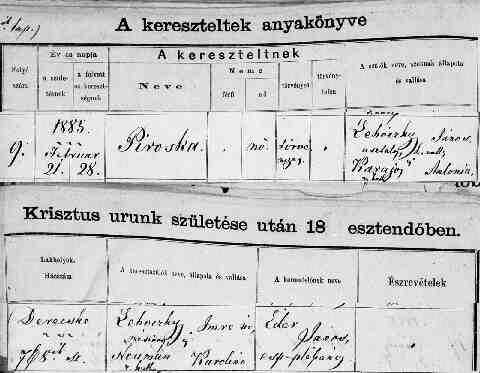 A kereszteltek anyakönyve
lap.)
Folyó szám
Év és napja
a születésnek
a felvett sz. keresztségnek
A kereszteltnek
Neve
Neme
férfi
nő
törvényes
törvénytelen
A szülők neve, azoknak állapota és vallása
9.
1885.
Február
21. 28.
Piroska.
nő.
törvé
Lehoczky János
Karajos Antonia,
Krisztus urunk születése után 18 esztendőben.
Lakhelyök.
Házszám
A keresztszülők neve, állapota és vallása
A keresztelőnek neve
Észrevételek
Derecske
Lehoczky Imre
Neumann Karolina
Eder János,
esp-plébános